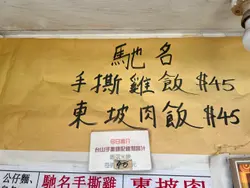 馳名
手撕雞飯 $45
東坡肉飯 $45
今日推介
公仔麵
馳名手撕雞
東坡肉